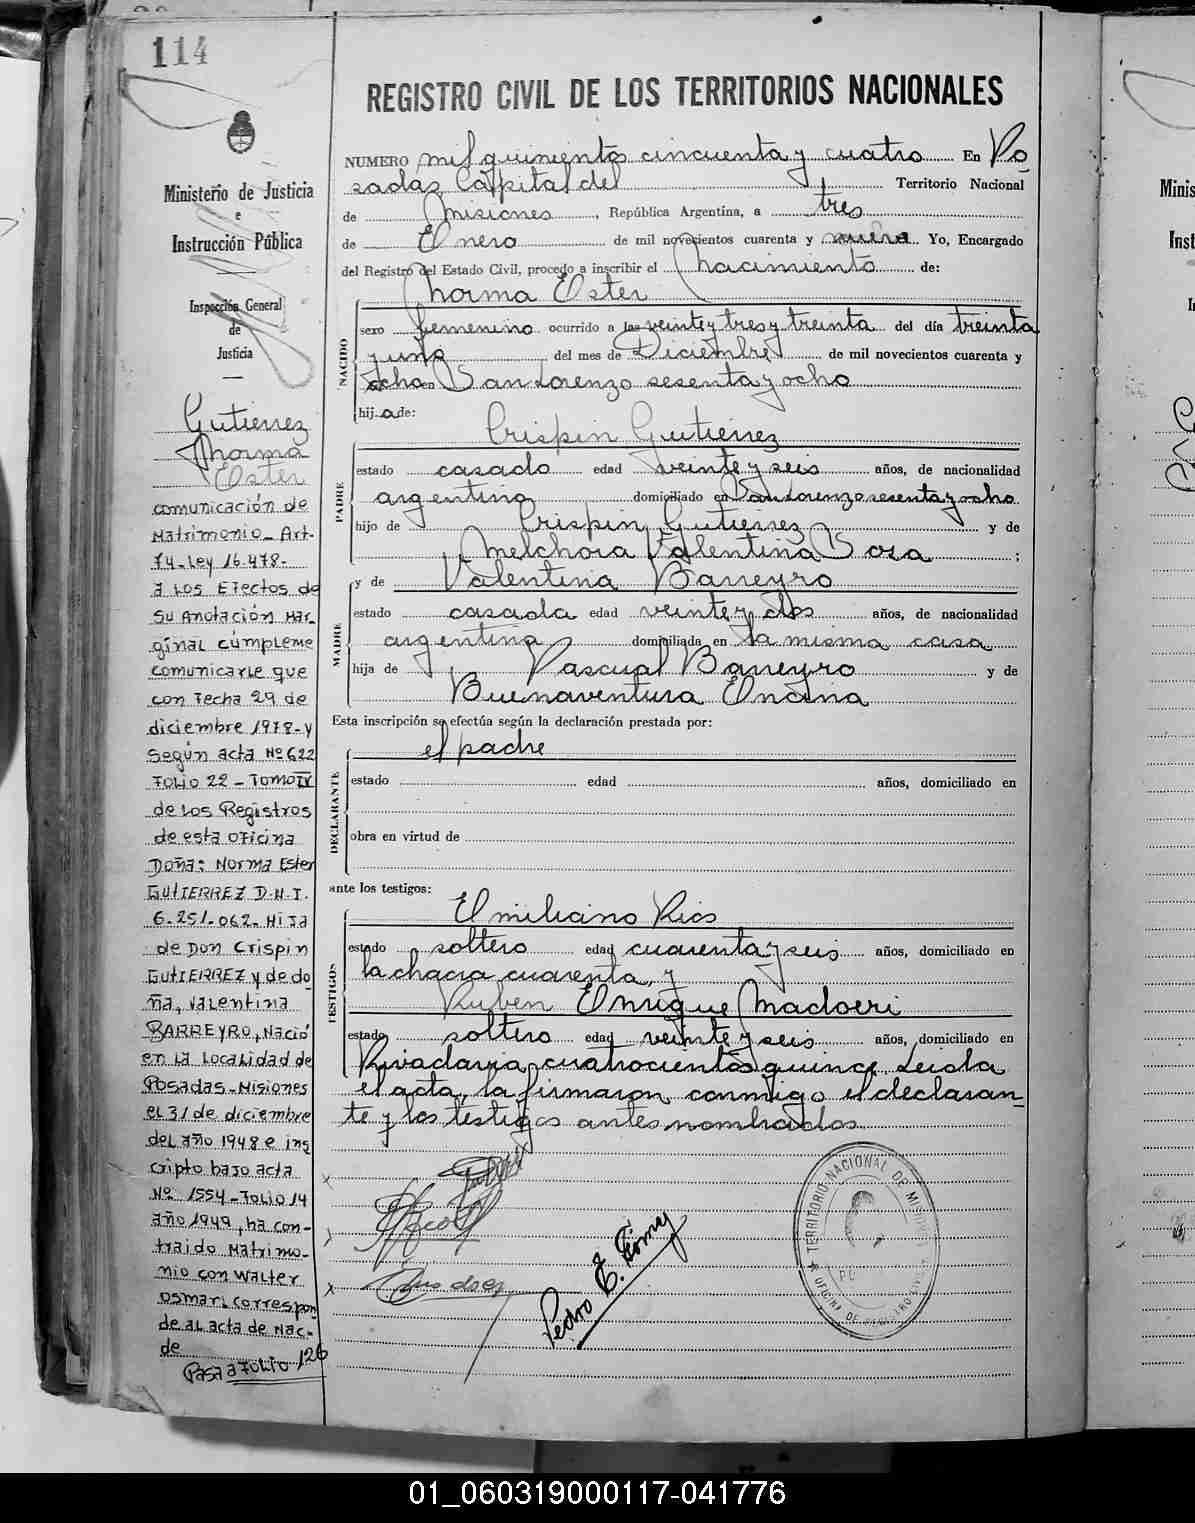 114
REGISTRO CIVIL DE LOS TERRITORIOS NACIONALES
Ministerio de Justicia
e
Instrucción Pública
Inspección General
de
Justicia
Gutierrez
Norma
Ester
comunicación de
Matrimonio_ Art-
74-Ley 16.478-
a Los Efectos de
su anotación Mar_
ginal cúmpleme
comunicarle que
con fecha 29 de
diciembre 1978-y
según acta Nº 622
Folio 22 - Tomo IV
de Los Registros
de esta oficina
Doña: Norma Ester
GUTIERREZ D.N.I.
6.251.062- Hija
de Don Crispin
GUTIERREZ y de do
ña, Valentina
BARREYRO, Nació
en la Localidad de
Posadas-Misiones
el 31 de diciembre
del año 1948 e ins
cripto bajo acta
Nº 1554-Folio 14
año 1949, ha con-
traido Matrimo-
nio con Walter
Osmar; correspon
de al acta de Nac-
de
Pasa a Folio 126
NUMERO mil quinientos cincuenta y cuatro En Po
sadas Capital del Territorio Nacional
de Misiones, República Argentina, a tres
de Enero de mil novecientos cuarenta y nueve Yo, Encargado
del Registro del Estado Civil, procedo a inscribir el Nacimiento de:
Norma Ester
NACIDO
sexo femenino ocurrido a las veinte y tres y treinta del día treinta
y uno del mes de Diciembre de mil novecientos cuarenta y
ocho en San Lorenzo sesenta y ocho
hij a de:
Crispin Gutierrez
PADRE
estado casado edad veinte y seis años, de nacionalidad
argentina domiciliado en San Lorenzo sesenta y ocho
hijo de Crispin Gutierrez y de
Melchora Valentina Sosa ;
y de Valentina Barreyro
MADRE
estado casada edad veinte y dos años, de nacionalidad
argentina domiciliada en la misma casa
hija de Pascual Barreyro y de
Buenaventura Encina
Esta inscripción se efectúa según la declaración prestada por:
el padre
DECLARANTE
estado edad años, domiciliado en
obra en virtud de
ante los testigos:
Emiliano Rios
TESTIGOS
estado soltero edad cuarenta y seis años, domiciliado en
la chacra cuarenta, y
Ruben Enrique Madoeri
estado soltero edad veinte y seis años, domiciliado en
Rivadavia cuatrocientos quince. Leida
el acta, la firmaron conmigo el declaran_
te y los testigos antes nombrados.
Pedro E.
TERRITORIO NACIONAL DE MISIONES
OFICINA DE REGISTRO CIVIL
Minis
Inst
01_060319000117-041776